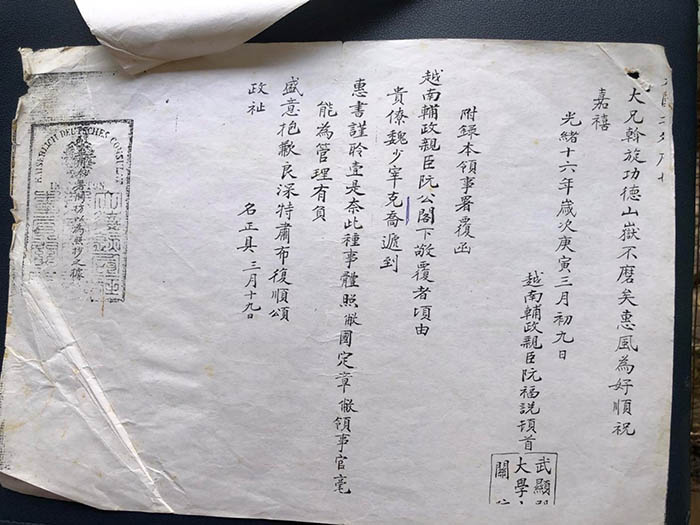 大兄斡旋功德山嶽不磨矣惠風為好順祝
嘉禧
光緒十六年歲次庚寅三月初九日
越南輔政親臣阮福說頓首
武顯
大學
關
附錄本領事署覆函
越南輔政親臣阮公閣下敬覆者頃由
貴僚魏少宰克喬遞到
惠書謹聆壹是奈此種事體照敝國定章敝領事官毫
能為管理有負
盛意抱歉良深特肅布復順頌
政祉
名正具 三月十九日
KAISERLICH DEUTSCHES CONSUL